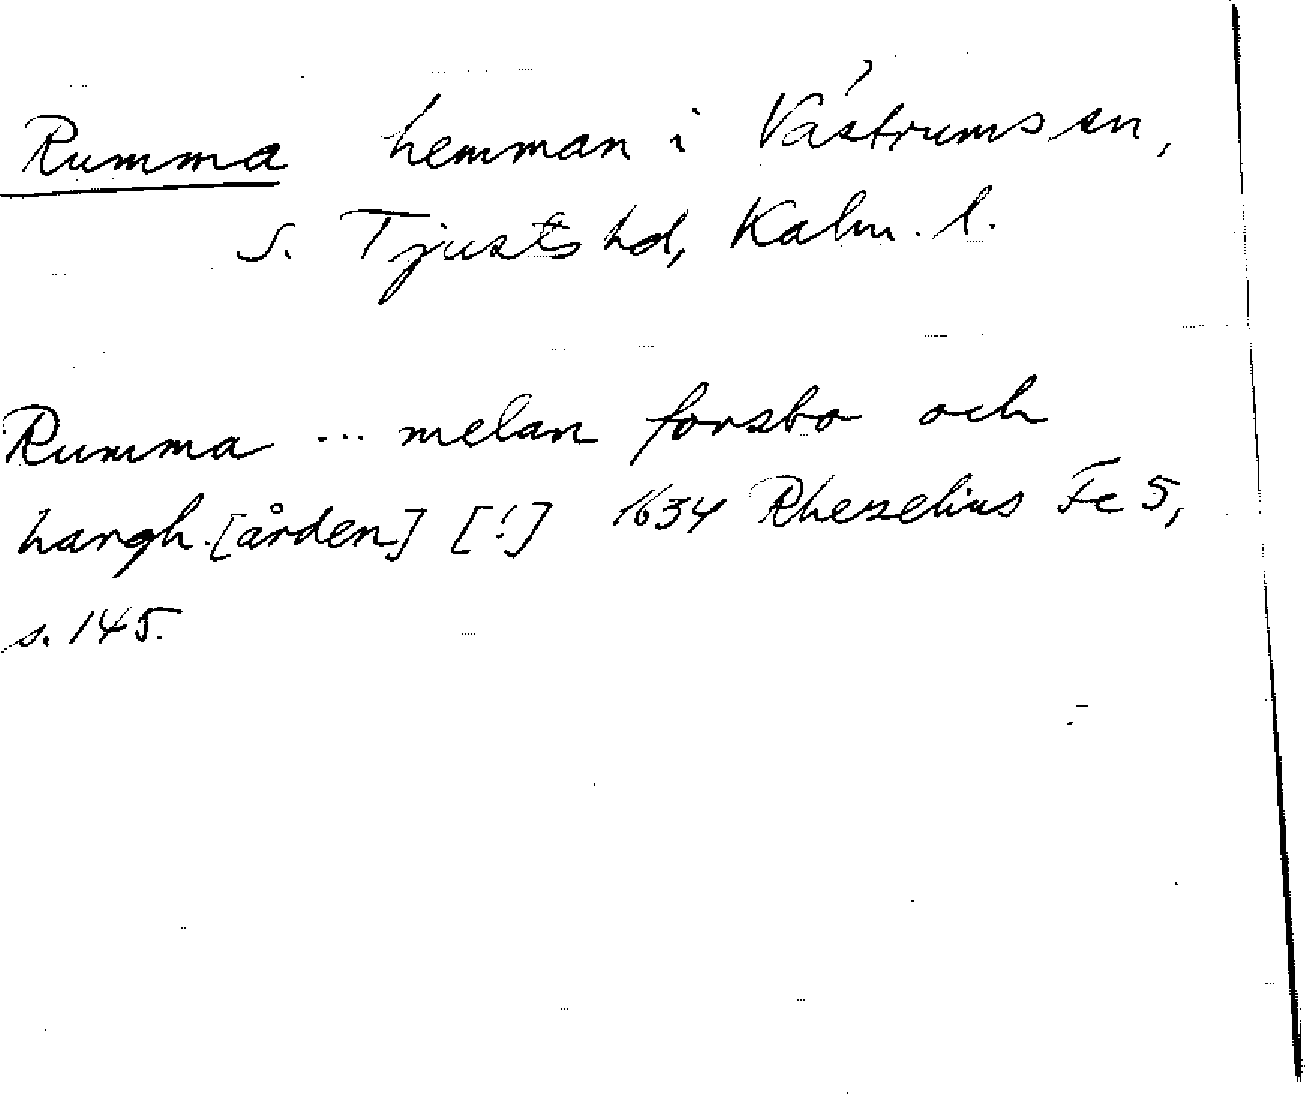 Rumma hemman i Västrums sn,
S. Tjusts hd, Kalm. l.
Rumma ... melan forsbo och
hargh. [ården] [!] 1634 Rhezelius Fc 5,
s. 145.